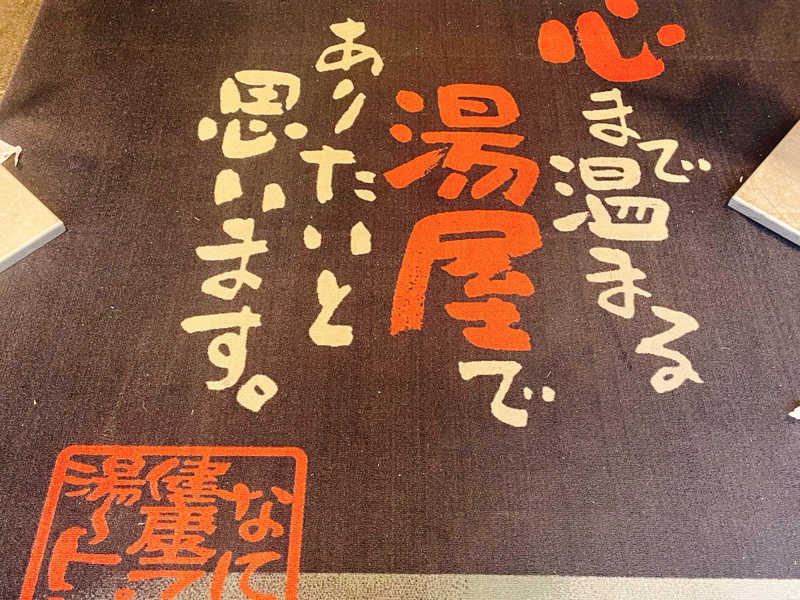 心まで温まる
湯屋で
ありたいと
思います。
なに
健康ス
湯〜ト